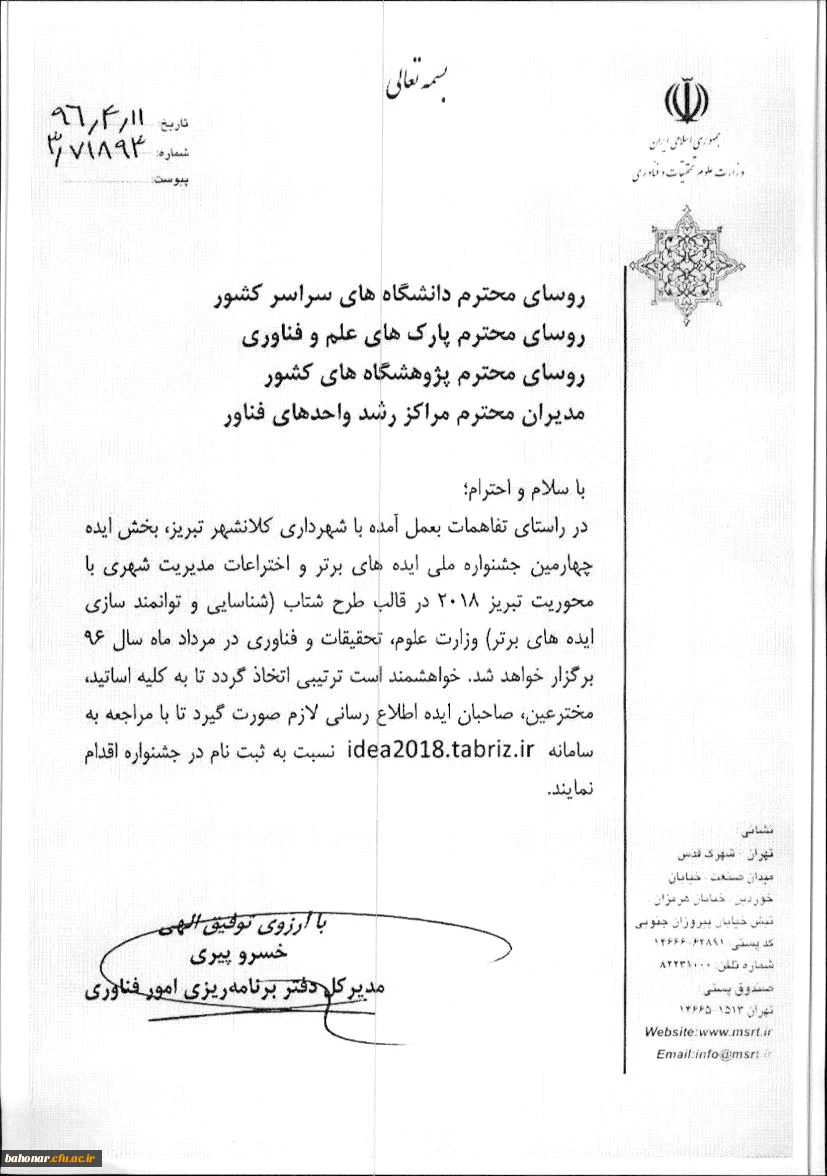 بسمه تعالی
جمهوری اسلامی ایران
وزارت علوم تحقیقات و فناوری
تاریخ: ۹۶٫۴٫۱۱
شماره: ۳٫۷۱۸۹۴
پیوست:
روسای محترم دانشگاه های سراسر کشور
روسای محترم پارک های علم و فناوری
روسای محترم پژوهشگاه های کشور
مدیران محترم مراکز رشد واحدهای فناور
با سلام و احترام؛
در راستای تفاهمات بعمل آمده با شهرداری کلانشهر تبریز، بخش ایده
چهارمین جشنواره ملی ایده های برتر و اختراعات مدیریت شهری با
محوریت تبریز ۲۰۱۸ در قالب طرح شتاب (شناسایی و توانمند سازی
ایده های برتر) وزارت علوم، تحقیقات و فناوری در مرداد ماه سال ۹۶
برگزار خواهد شد. خواهشمند است ترتیبی اتخاذ گردد تا به کلیه اساتید،
مخترعین، صاحبان ایده اطلاع رسانی لازم صورت گیرد تا با مراجعه به
سامانه idea2018.tabriz.ir نسبت به ثبت نام در جشنواره اقدام
نمایند.
با آرزوی توفیق الهی
خسرو پیری
مدیرکل دفتر برنامه‌ریزی امور فناوری
نشانی:
تهران - شهرک قدس
میدان صنعت - خیابان
خوردین - خیابان هرمزان
نبش خیابان پیروزان جنوبی
کد پستی: ۶۴۸۹۱-۱۴۶۶۶
شماره تلفن: ۸۲۲۳۱۰۰۰
صندوق پستی:
تهران ۱۵۱۳-۱۴۶۶۵
Website:www.msrt.ir
Email:info@msrt.ir
bahonar.cfu.ac.ir